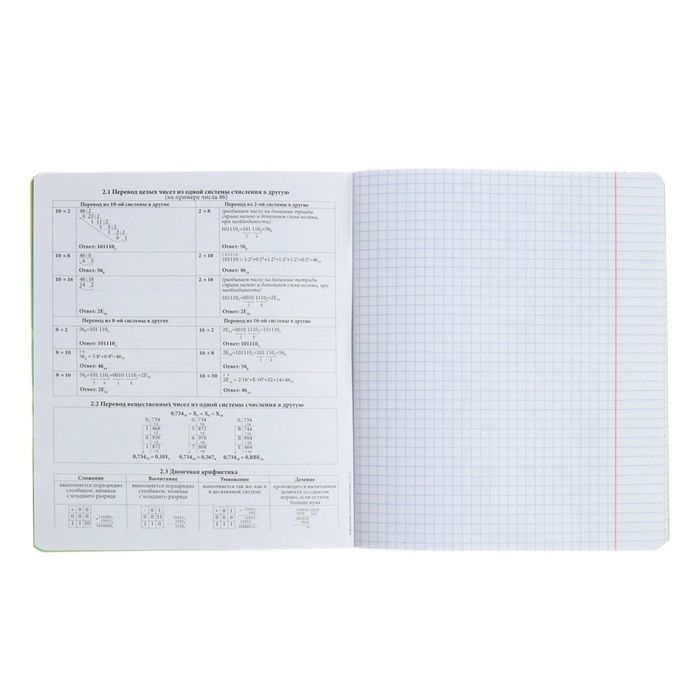 2.1 Перевод целых чисел из одной системы счисления в другую
(на примере числа 46)
Перевод из 10-ой системы в другие
Перевод из 2-ой системы в другие
10→2
46:2
0 23:2
1 11:2
1 5:2
1 2:2
0 1
Ответ: 101110₂
2→8
(разбиваем число на двоичные триады
справа налево и дополняем слева нолями,
при необходимости)
101110₂=101 110₂=56₈
5 6
Ответ: 56₈
10→8
46:8
6 5
Ответ: 56₈
2→10
5 4 3 2 1 0
101110 = 1·2⁵+0·2⁴+1·2³+1·2²+1·2¹+0·2⁰=46₁₀
Ответ: 46₁₀
10→16
46:16
14 2
Ответ: 2E₁₆
2→16
(разбиваем число на двоичные тетрады
справа налево и дополняем слева нолями, при
необходимости)
101110₂=0010 1110₂=2E₁₆
2 E
Ответ: 2E₁₆
Перевод из 8-ой системы в другие
Перевод из 16-ой системы в другие
8→2
56₈=101 110₂
Ответ: 101110₂
16→2
2E₁₆=0010 1110₂=101110₂
Ответ: 101110₂
8→10
1 0
56₈ = 5·8¹+6·8⁰=46₁₀
Ответ: 46₁₀
16→8
2E₁₆=101110₂=101 110₂=56₈
5 6
Ответ: 56₈
8→16
56₈=101 110₂=0010 1110₂=2E₁₆
5 6 2 E
Ответ: 2E₁₆
16→10
1 0
2E₁₆ = 2·16¹+E·16⁰=32+14=46₁₀
Ответ: 46₁₀
2.2 Перевод вещественных чисел из одной системы счисления в другую
0,734₁₀ = X₂ = X₈ = X₁₆
0, 734
1 468
0 936
1 872
0,734₁₀ = 0,101₂
0, 734
5 872
6 976
7 808
0,734₁₀ = 0,567₈
0, 734
B 744
B 904
E 464
0,734₁₀ = 0,BBE₁₆
2.3 Двоичная арифметика
Сложение
Вычитание
Умножение
Деление
выполняется поразрядно
столбиком, начиная
с младшего разряда
выполняется поразрядно
столбиком, начиная
с младшего разряда
выполняется так же, как и
в десятичной системе
производится вычитанием
делителя со сдвигом
вправо, если остаток
больше нуля
+ 0 0
0 0 0
1 1 10
- 0 1
0 0 11
1 1 0
× 0 1
0 0 0
1 0 1